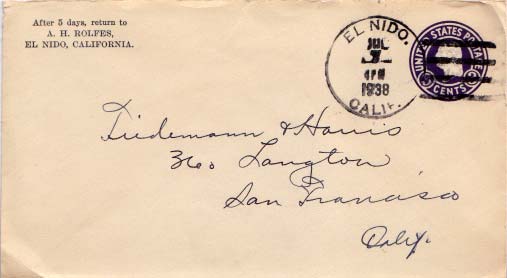 After 5 days, return to
A. H. ROLFES,
EL NIDO, CALIFORNIA.
EL NIDO.
JUL
4PM
1938
CALIF.
UNITED STATES POSTAGE
3 CENTS 3
Tiedemann & Harris
360 Langton
San Francisco
Calif.